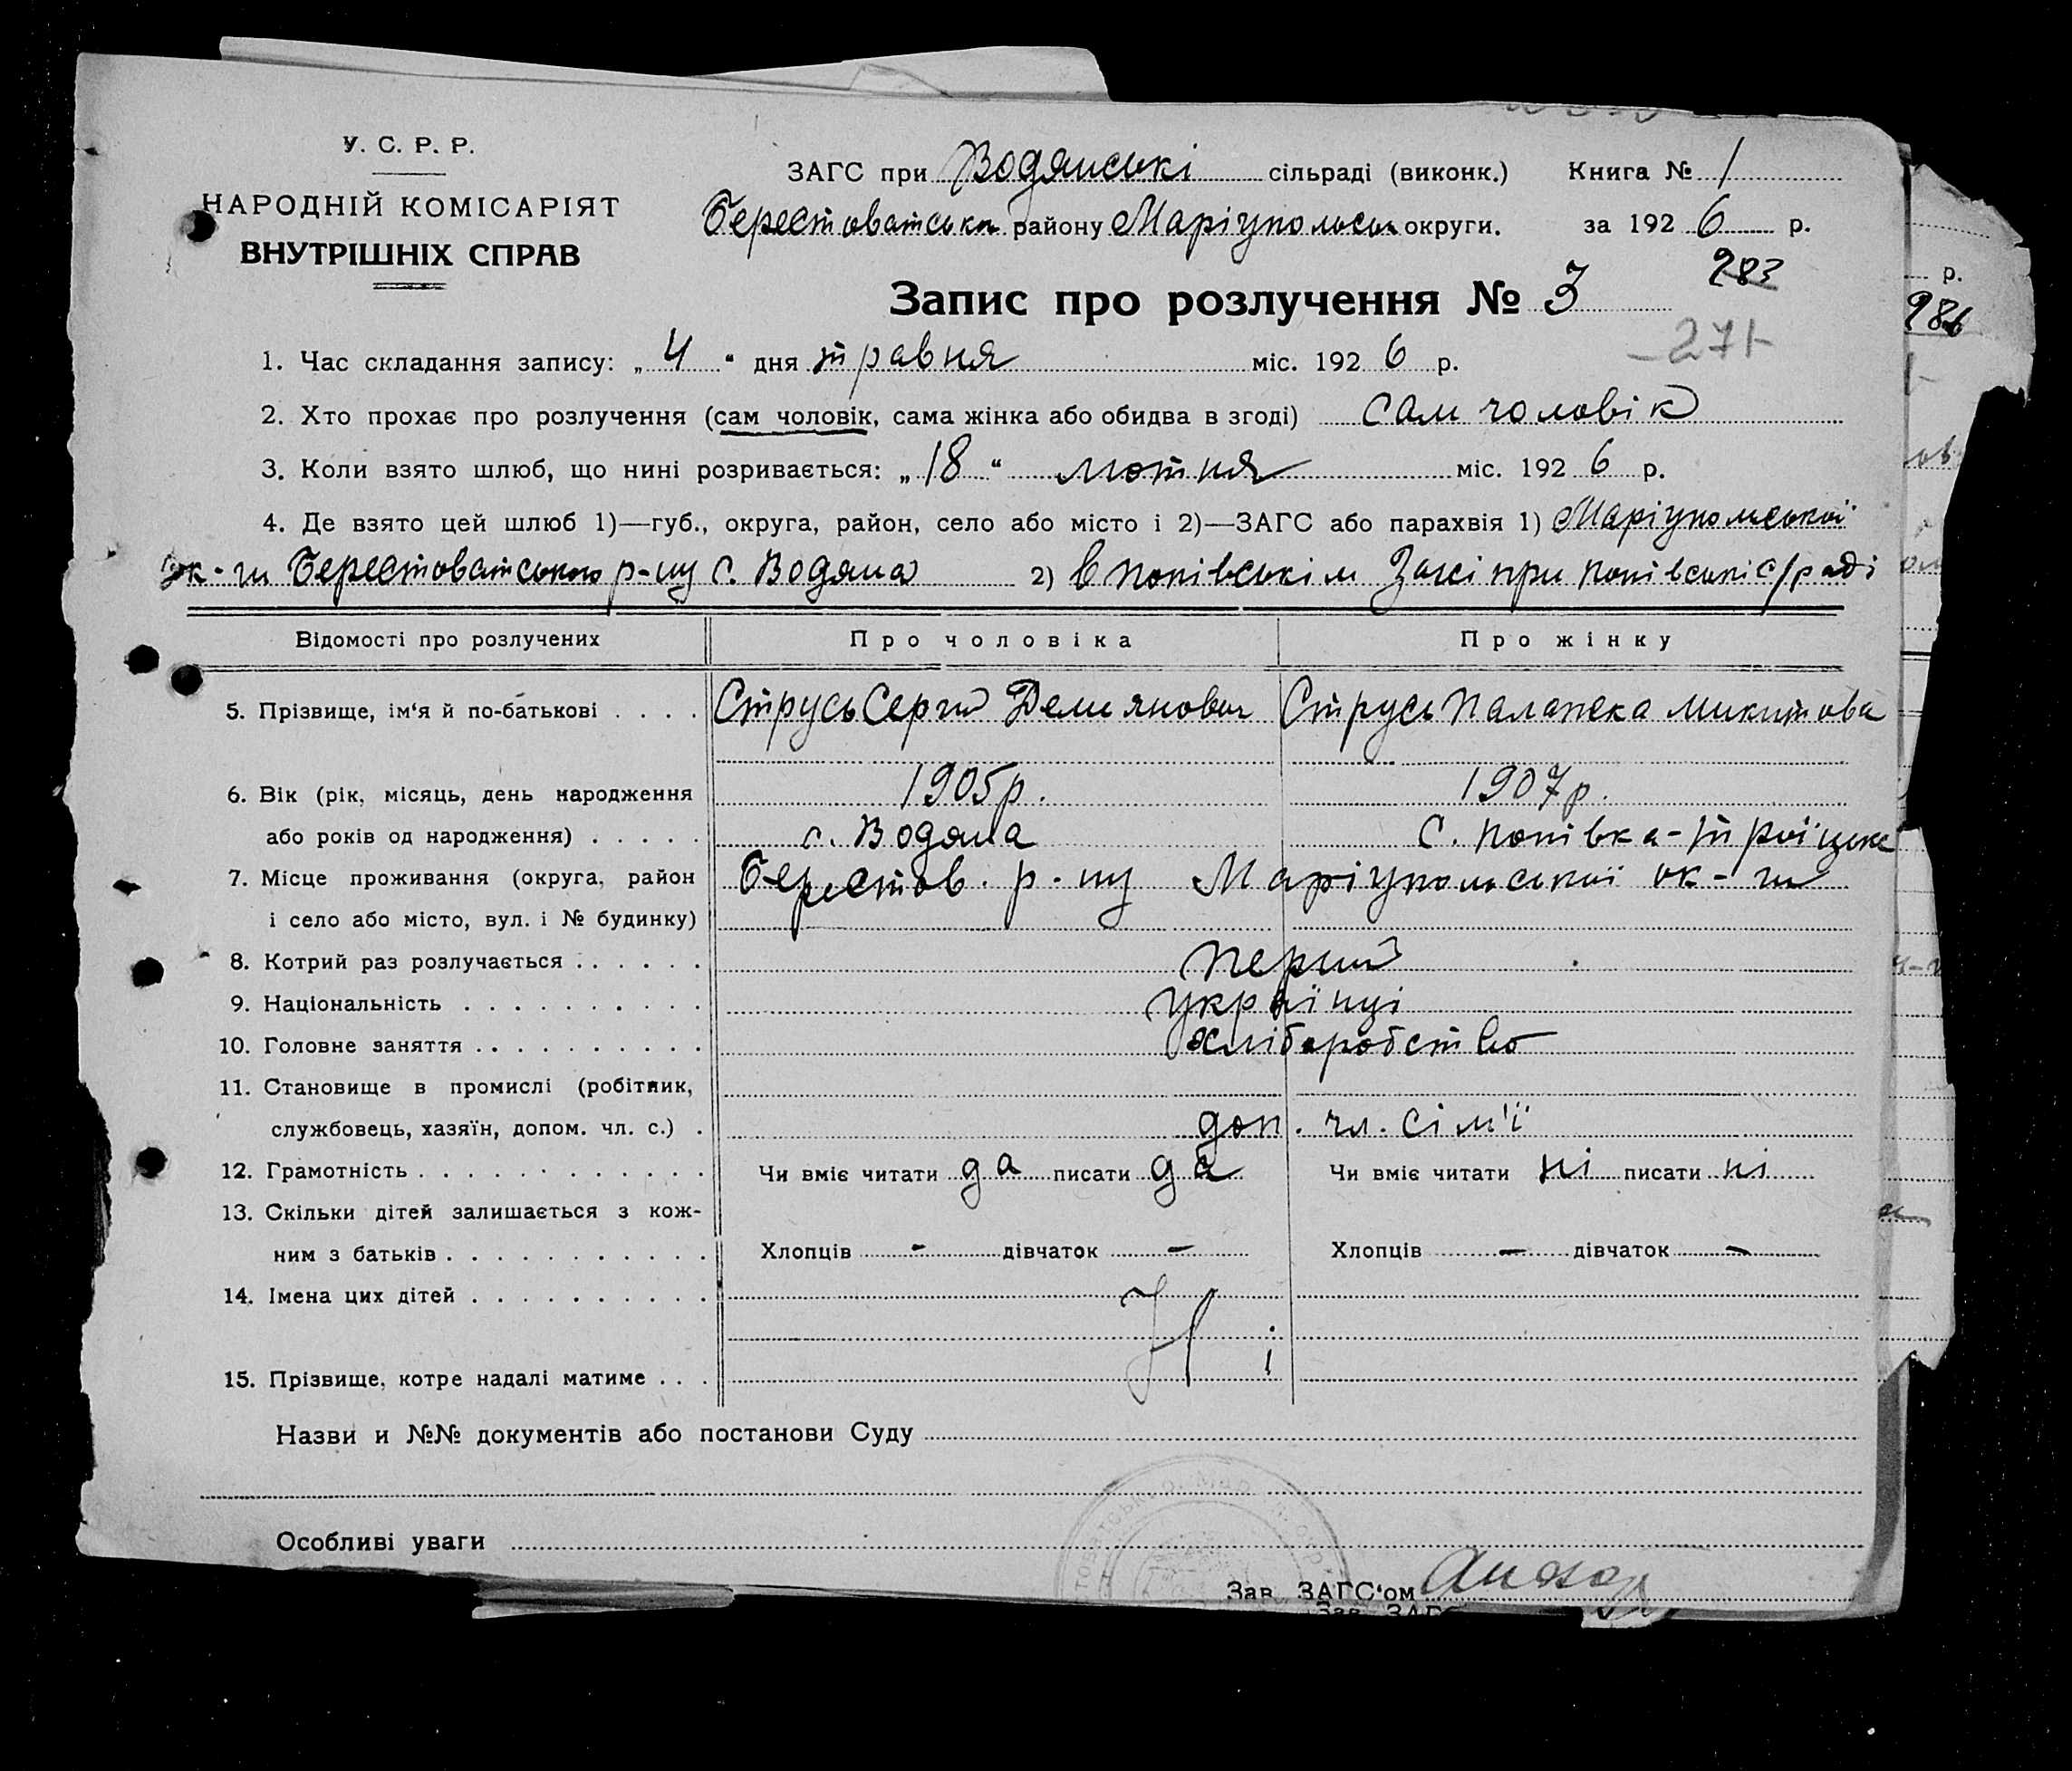 У. С. Р. Р.
НАРОДНІЙ КОМІСАРІЯТ
ВНУТРІШНІХ СПРАВ
ЗАГС при Водянські сільраді (виконк.) Книга № 1
Берестоватськ району Маріупольськ округи. за 1926 р.
283
Запис про розлучення № 3
271
1. Час складання запису: „4“ дня травня міс. 1926 р.
2. Хто прохає про розлучення (сам чоловік, сама жінка або обидва в згоді) сам чоловік
3. Коли взято шлюб, що нині розривається: „18“ лютня міс. 1926 р.
4. Де взято цей шлюб 1)—губ., округа, район, село або місто і 2)—ЗАГС або парахвія 1) Маріупольської
ок-ги Берестоватського р-ну с. Водяна 2) в попівськім Загсі при попівські с/раді
Відомості про розлучених Про чоловіка Про жінку
5. Прізвище, ім‘я й по-батькові . . . . Струсь Сергій Демянович Струсь Палажка Микитова
6. Вік (рік, місяць, день народження 1905р. 1907р.
або років од народження) . . . . . с. Водяна с. попівка-
7. Місце проживання (округа, район Берестов. р-ну Маріупольської ок-ги
і село або місто, вул. і № будинку)
8. Котрий раз розлучається . . . . . . перший
9. Національність . . . . . . . . . . українці
10. Головне заняття . . . . . . . . . . хліборобство
11. Становище в промислі (робітник,
службовець, хазяїн, допом. чл. с.) . доп. чл. сім'ї
12. Грамотність . . . . . . . . . . . . Чи вміє читати да писати да Чи вміє читати ні писати ні
13. Скільки дітей залишається з кож-
ним з батьків . . . . . . . . . . . Хлопців - дівчаток - Хлопців - дівчаток -
14. Імена цих дітей . . . . . . . . . .
Ні
15. Прізвище, котре надалі матиме . . .
Назви и №№ документів або постанови Суду
Особливі уваги
Зав. ЗАГС‘ом